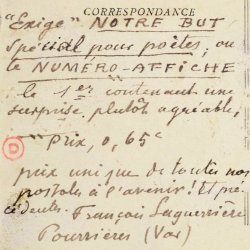 CORRESPONDANCE
"Exige" NOTRE BUT
spécial pour poètes, ou
le NUMÉRO-AFFICHE
le 1er contenant une
surprise, plutôt agréable,
Prix, 0,65c
prix unique de toutes nos
postoles à l'avenir! Et pré-
cédentes. François Laguerrière
Pourrières (Var)